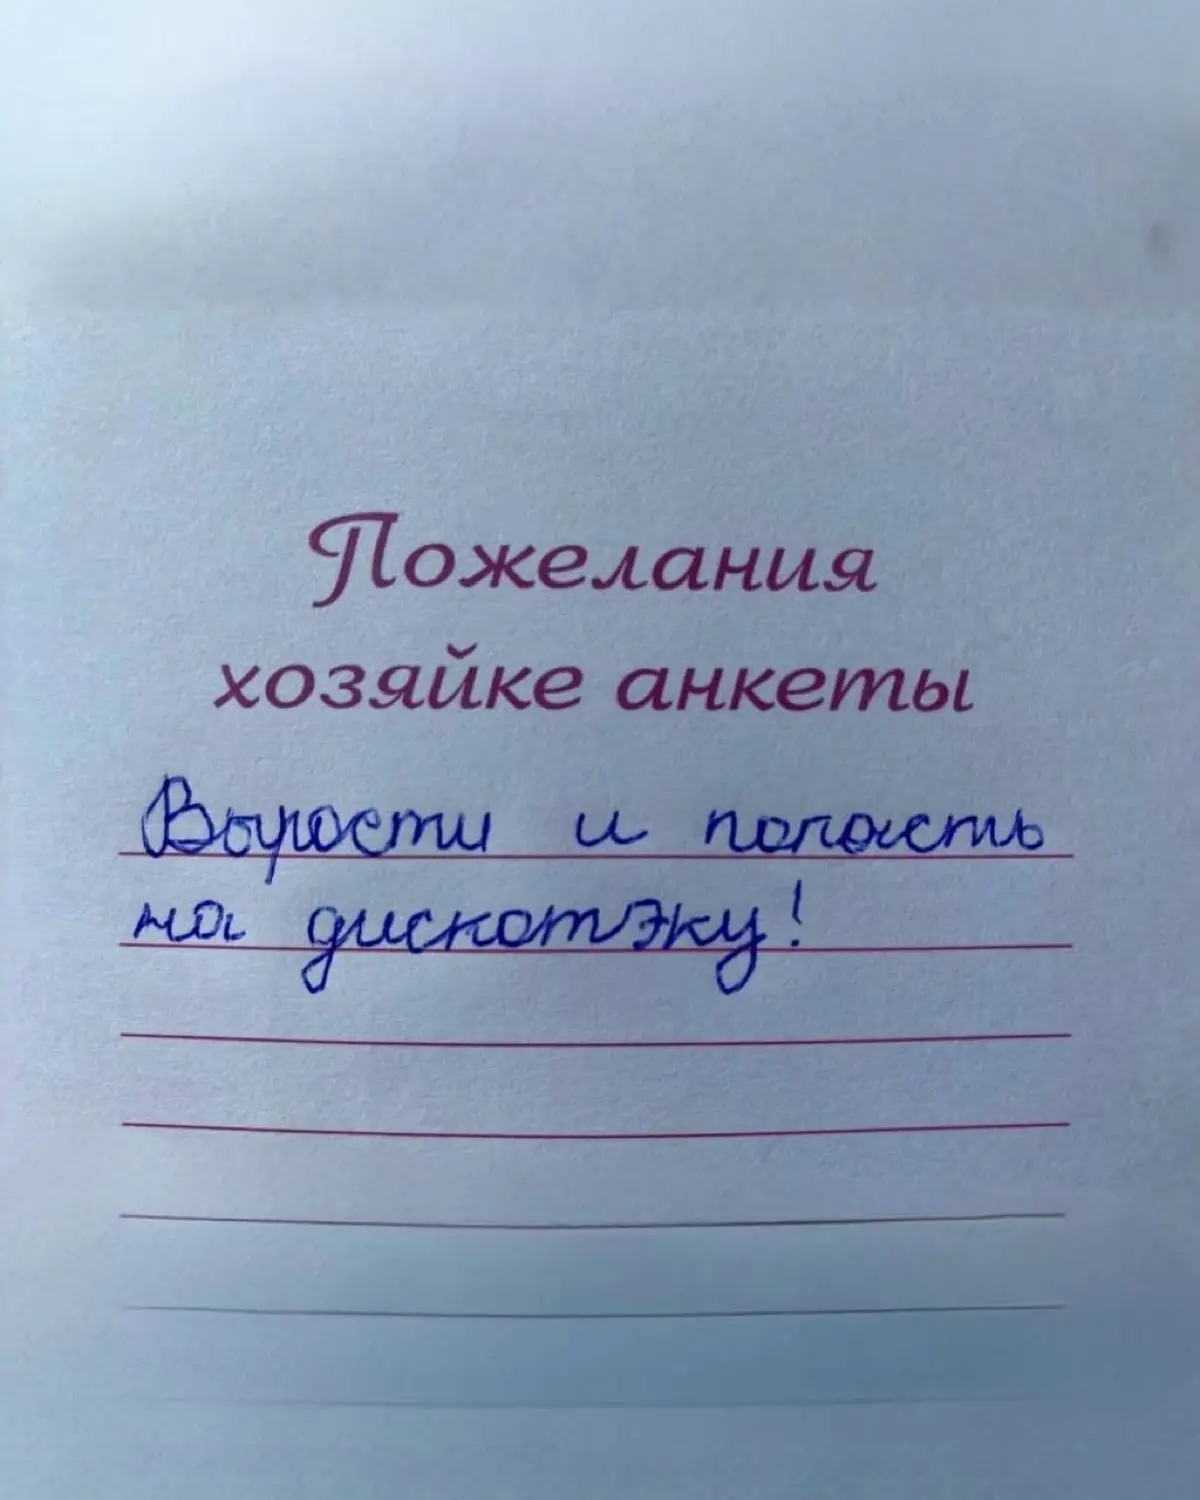 Пожелания
хозяйке анкеты
Вырости и попасть
на дискотэку!